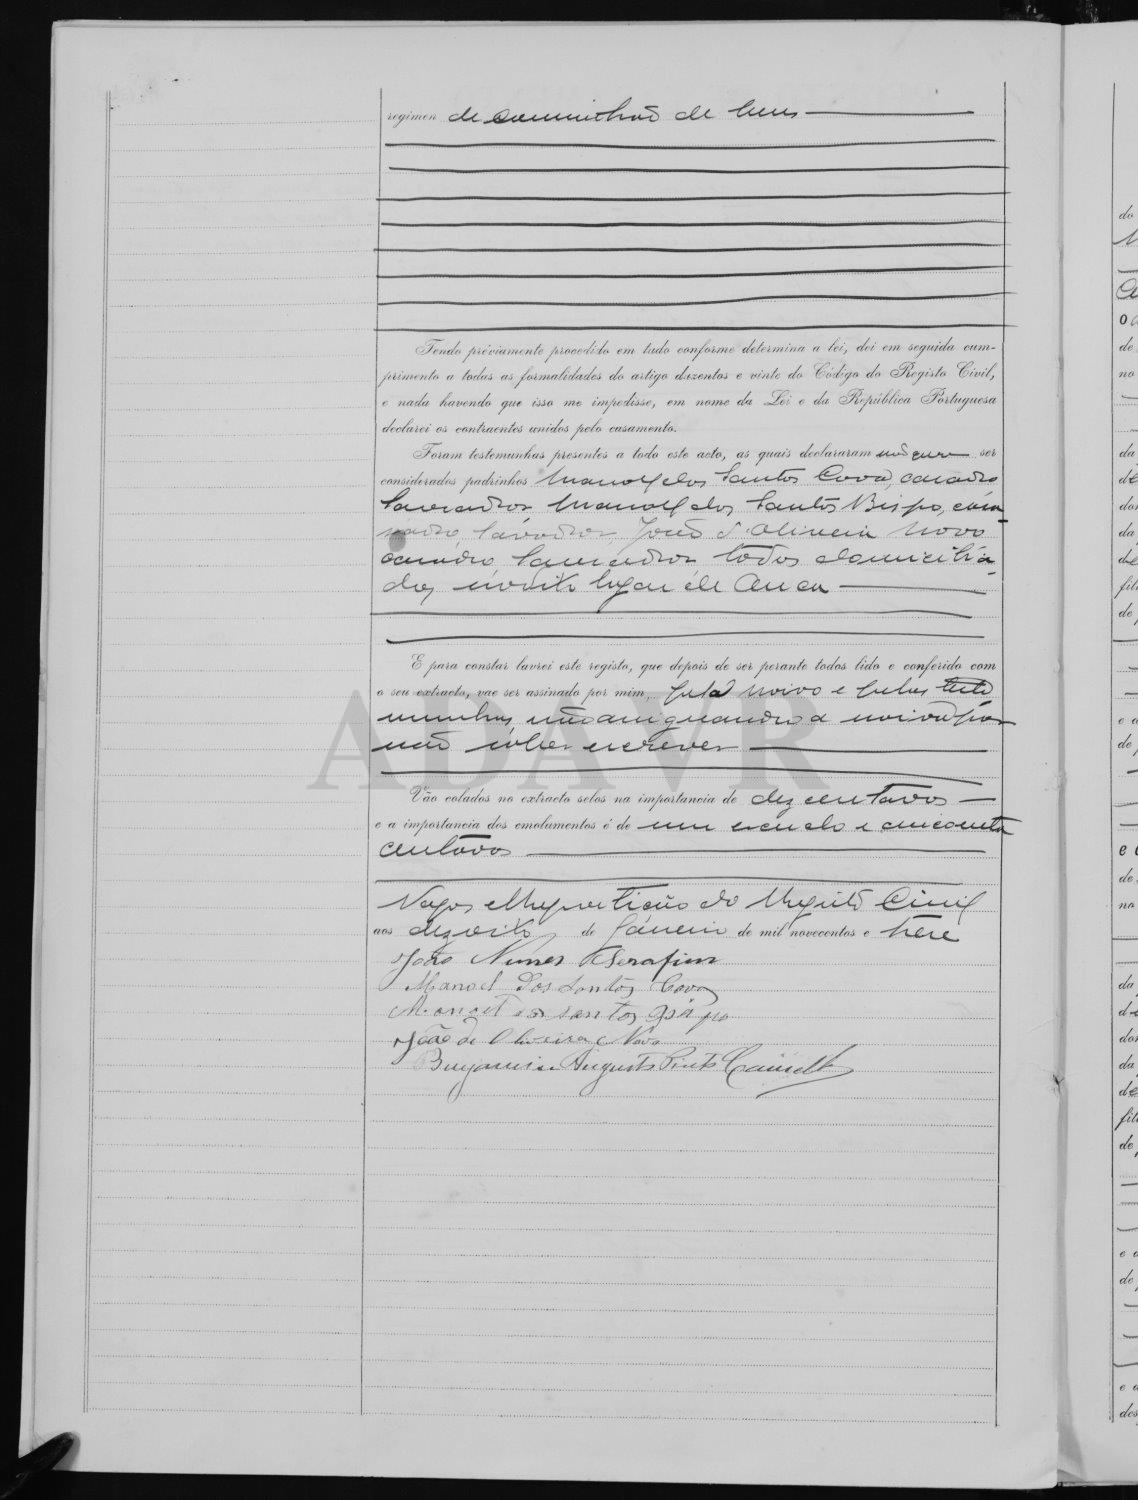 regimen de comunhão de bens
Tendo préviamente procedido em tudo conforme determina a lei, dei em seguida cum-
primento a todas as formalidades do artigo duzentos e vinte do Código do Registo Civil,
e nada havendo que isso me impedisse, em nome da Lei e da República Portuguesa
declarei os contraentes unidos pelo casamento.
Foram testemunhas presentes a todo este acto, as quais declararam ser
considerados padrinhos Manoel dos Santos Cova, casado
lavrador Manoel dos Santos Bispo, ca
sado, lavrador João d'Oliveira Novo
casado, lavrador todos domicilia-
dos lugar de
E para constar lavrei este registo, que depois de ser perante todos lido e conferido com
o seu extracto, vae ser assinado por mim, pelo noivo e pelas teste
munhas, não assignando a noiva por
não saber escrever
Vão colados no extracto selos na importancia de dez centavos
e a importancia dos emolumentos é de um escudo e cincoenta
centavos
Vagos e Repartição do Registo Civil
aos dezoito de Janeiro de mil novecentos e treze
João Nunes Serafim
Manoel Dos Santos Cova
Manoel dos santos Bispo
João de Oliveira Novo
Benjamin Augusto Pinto
ADAVR
do
da
de
no
da
do
fili
de
e a
de
e
de
no
da
do
da
fili
de
e a
de
e a
des